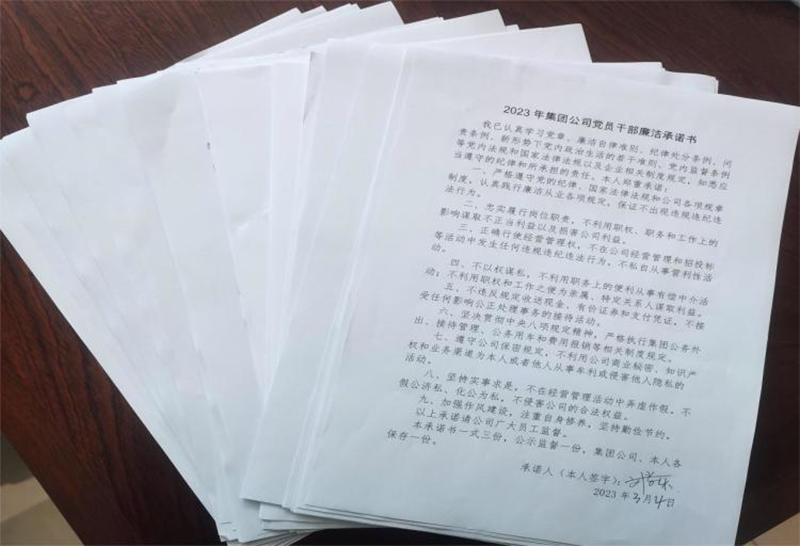 2023 年集团公司党员干部廉洁承诺书
我已认真学习党章、廉洁自律准则、纪律处分条例、问
责条例、新形势下党内政治生活的若干准则、党内监督条例
等党内法规和国家法律法规以及企业相关制度规定，知悉应
当遵守的纪律和所承担的责任。本人郑重承诺：
一、严格遵守党的纪律、国家法律法规和公司各项规章
制度，认真践行廉洁从业各项规定，保证不出现违规违纪违
法行为。
二、忠实履行岗位职责，不利用职权、职务和工作上的
影响谋取不正当利益以及损害公司利益。
三、正确行使经营管理权，不在公司经营管理和招投标
等活动中发生任何违规违纪违法行为，不私自从事营利性活
动。
四、不以权谋私，不利用职务上的便利从事有偿中介活
动；不利用职权和工作之便为亲属、特定关系人谋取利益。
五、不违反规定收送现金、有价证券和支付凭证，不接
受任何影响公正处理事务的接待活动。
六、坚决贯彻中央八项规定精神，严格执行集团公务外
出、接待管理、公务用车和费用报销等相关制度规定。
七、遵守公司保密规定，不利用公司商业秘密、知识产
权和业务渠道为本人或者他人从事牟利或侵害他人隐私的
活动。
八、坚持实事求是，不在经营管理活动中弄虚作假，不
假公济私、化公为私，不侵害公司的合法权益。
九、加强作风建设，注重自身修养，坚持勤俭节约。
以上承诺请公司广大员工监督。
本承诺书一式三份，公示监督一份，集团公司、本人各
保存一份。
承诺人（本人签字）：
2023 年 3 月 4 日